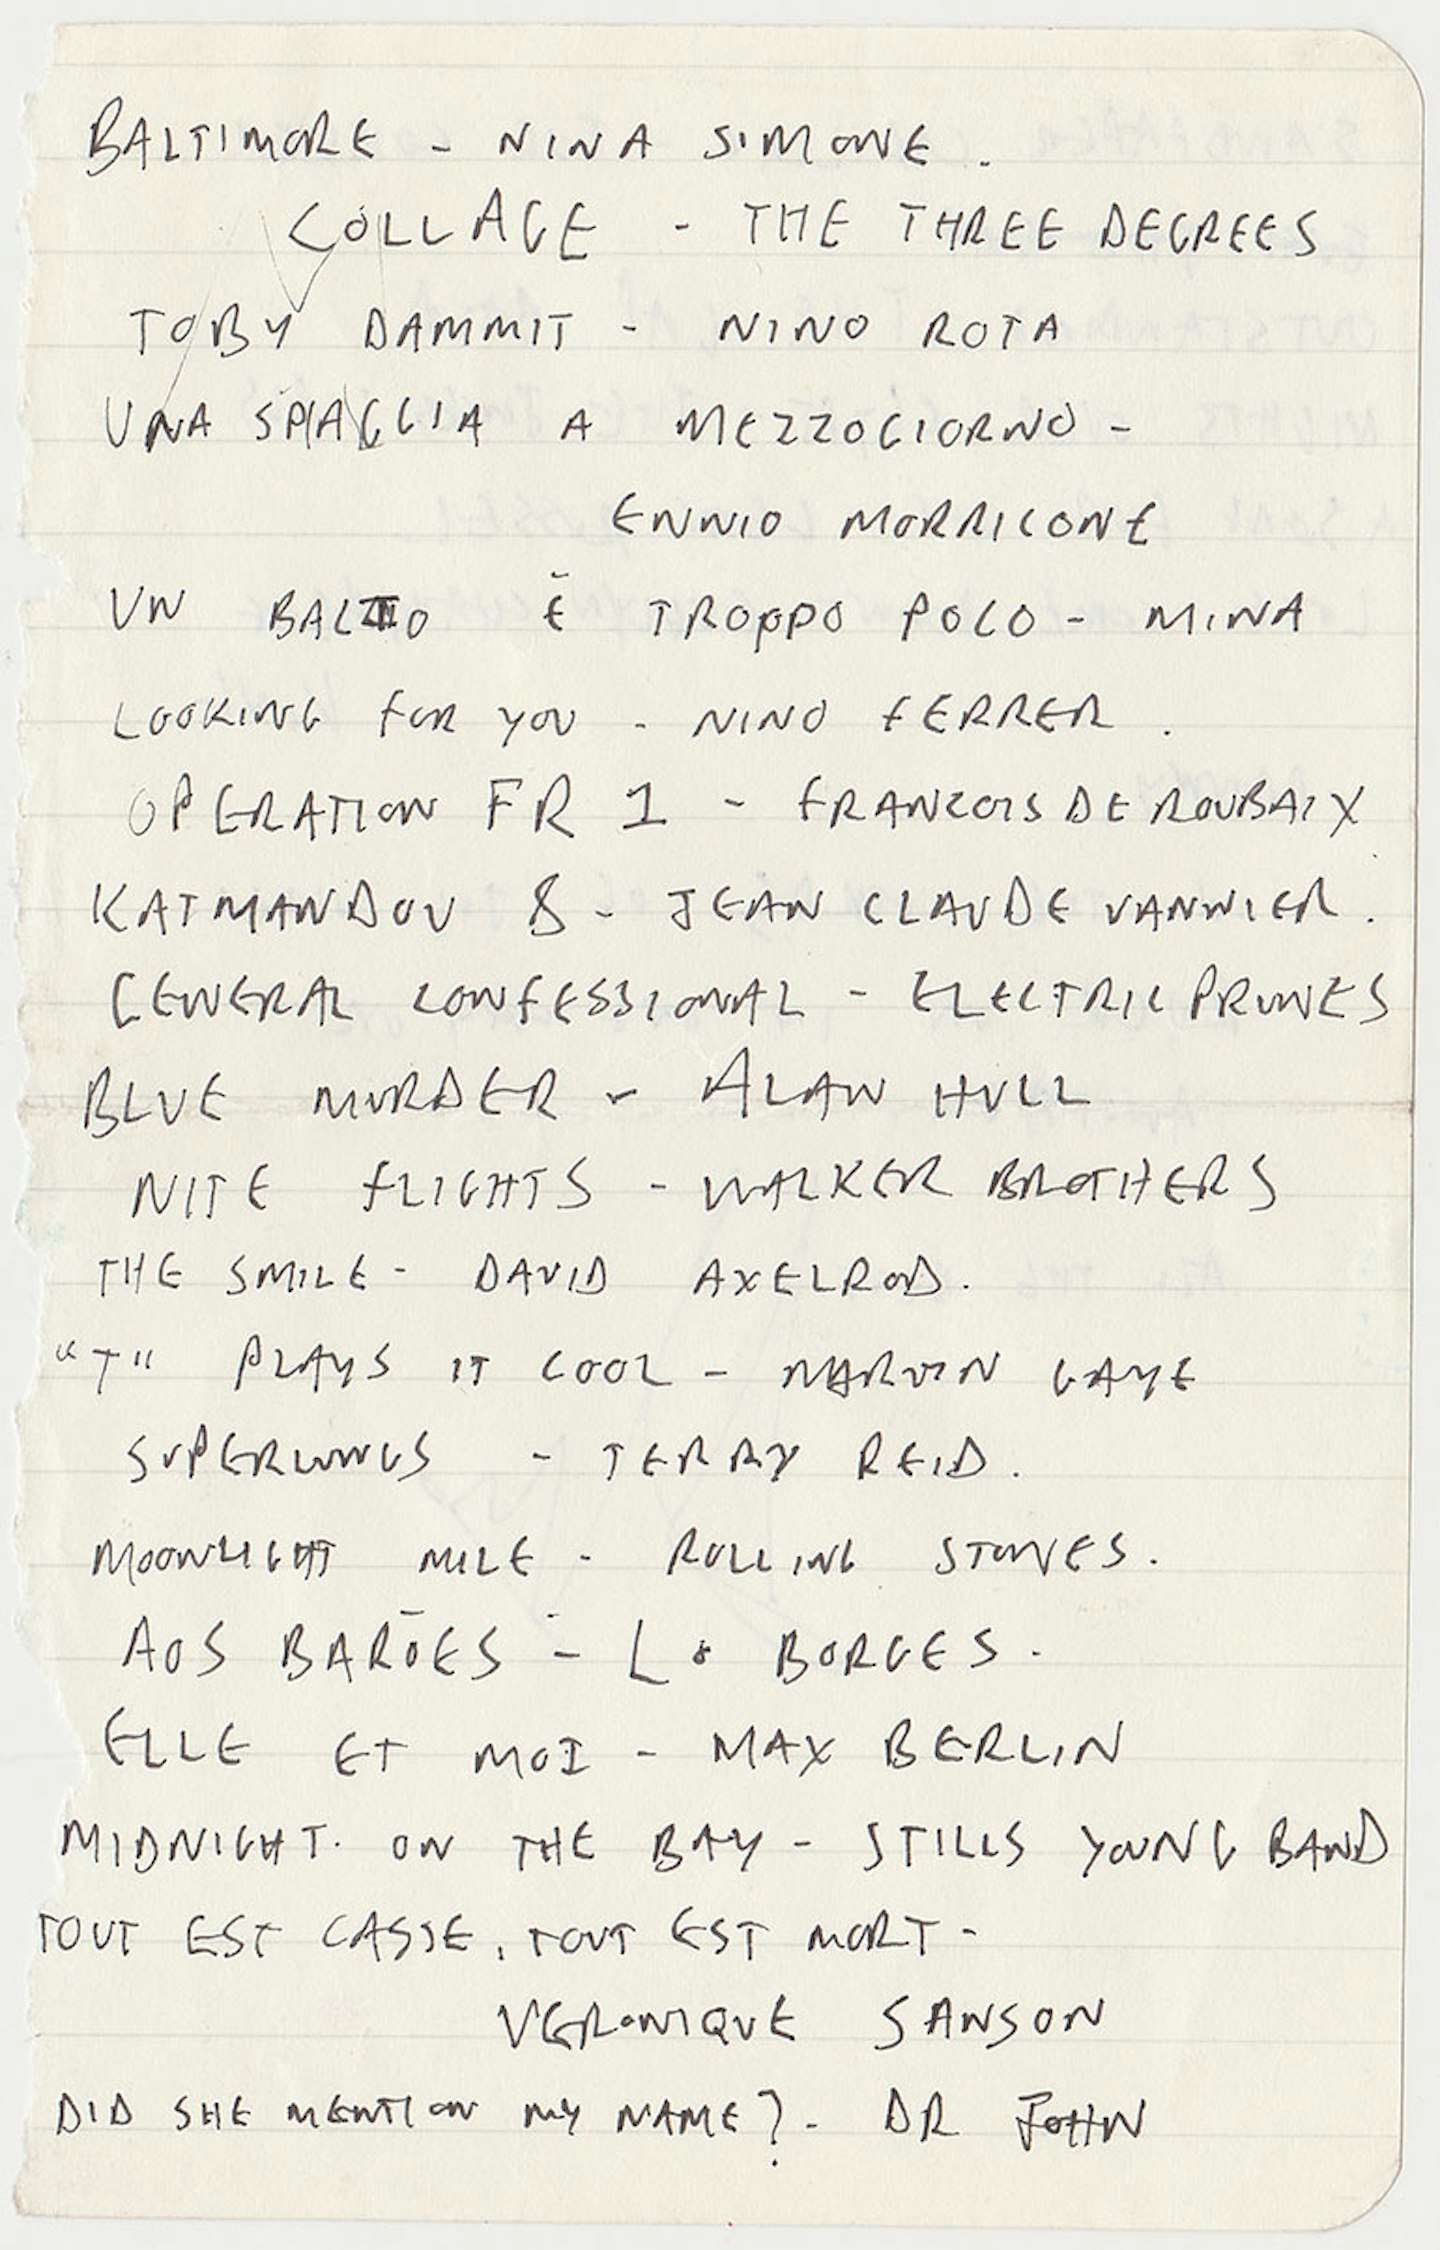 BALTIMORE - NINA SIMONE.
COLLAGE - THE THREE DEGREES
TOBY DAMMIT - NINO ROTA
UNA SPIAGGIA A MEZZOGIORNO -
ENNIO MORRICONE
UN È TROPPO POCO - MINA
LOOKING FOR YOU - NINO FERRER.
OPERATION FR 1 - FRANCOIS DE ROUBAIX
KATMANDOU 8 - JEAN CLAUDE VANNIER.
GENERAL CONFESSIONAL - ELECTRIC PRUNES
BLUE MURDER - ALAN HULL
NITE FLIGHTS - WALKER BROTHERS
THE SMILE - DAVID AXELROD.
"T" PLAYS IT COOL - MARVIN GAYE
SUPERLUNGS - TERRY REID.
MOONLIGHT MILE - ROLLING STONES.
AOS BARÕES - LO BORGES.
ELLE ET MOI - MAX BERLIN
MIDNIGHT. ON THE BAY - STILLS YOUNG BAND
TOUT EST CASSE, TOUT EST MORT -
VERONIQUE SANSON
DID SHE MENTION MY NAME? - DR JOHN